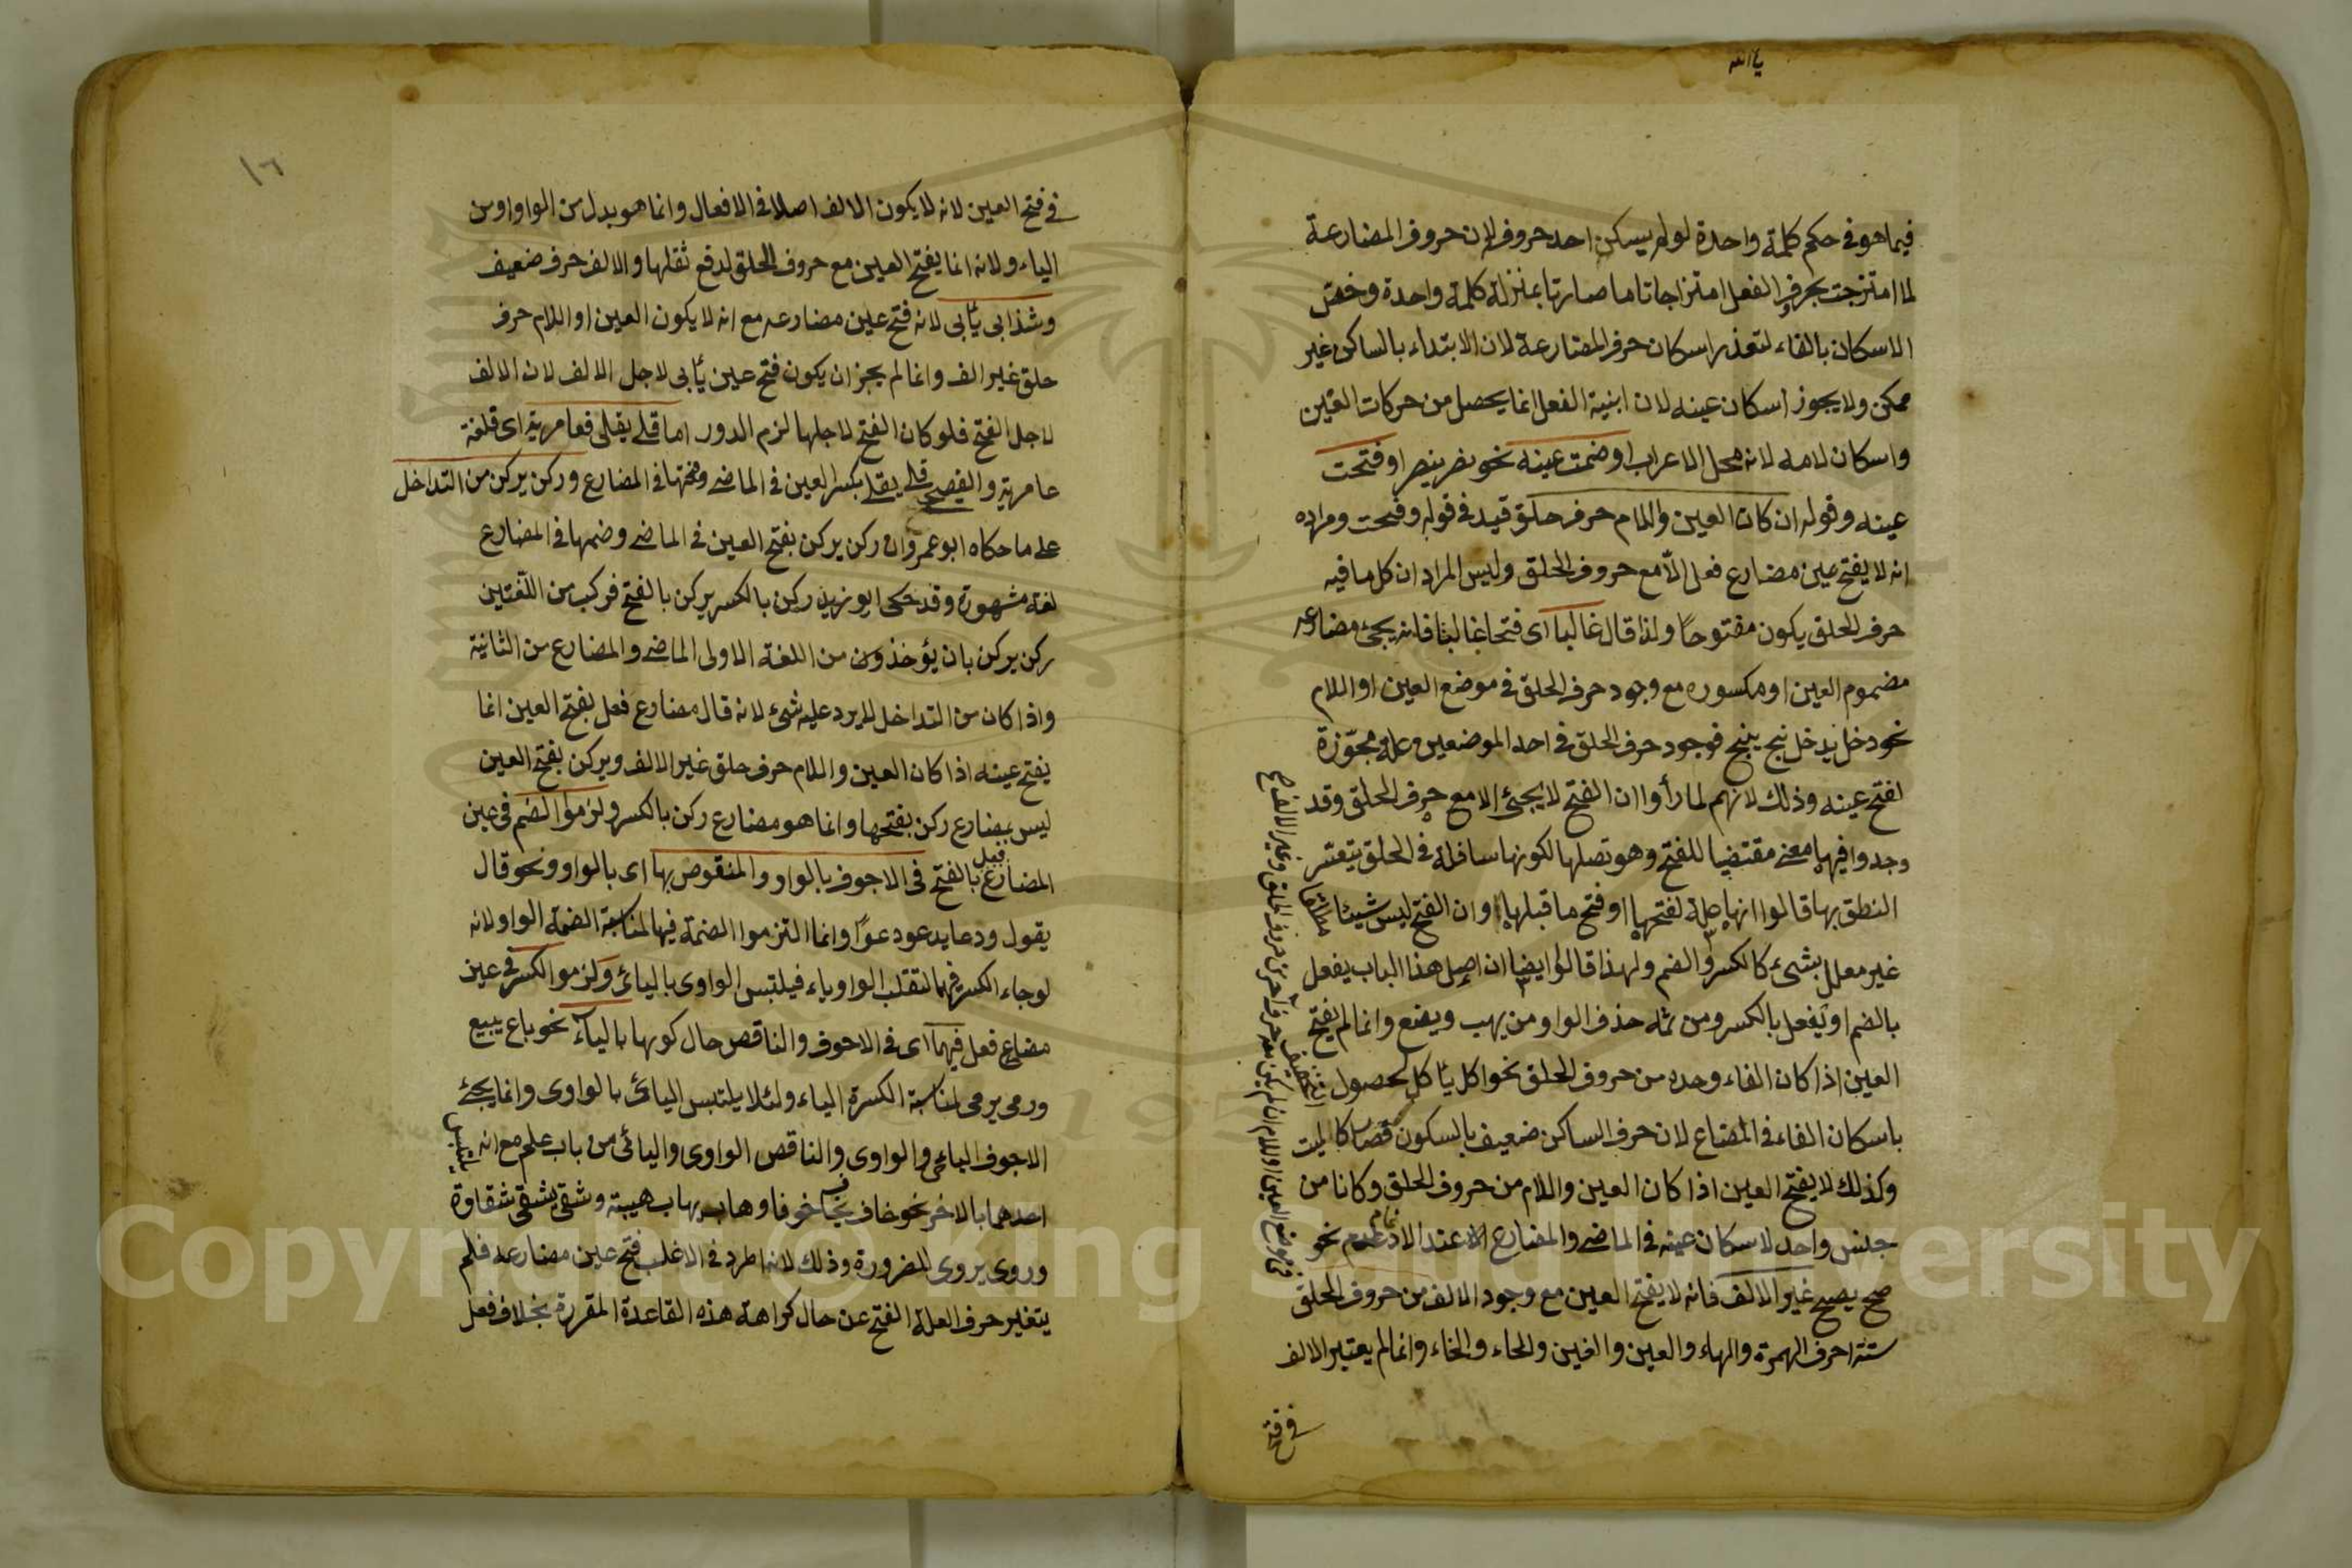 يا الله
فيما هو في حكم كلمة واحدة لو لم يسكن احد حروفه لان حروف المضارعة
لما امتزجت بحرف الفعل امتزاجا تاما صارتا بمنزلة كلمة واحدة وخص
الاسكان بالفاء لتعذر اسكان حرف المضارعة لان الابتداء بالساكن غير
ممكن ولا يجوز اسكان عينه لان ابنية الفعل انما يحصل من حركات العين
واسكان لامه لانه محل الاعراب او ضمت عينه نحو نصر ينصر او فتحت
عينه وقوله ان كان العين واللام حرف حلق قيد في قوله وفتحت ومراده
انه لا يفتح عين مضارع فعل الّا مع حروف الحلق وليس المراد ان كل ما فيه
حرف الحلق يكون مفتوحاً ولذا قال غالبا اى فتحا غالبا فانه يجئ مضارعه
مضموم العين او مكسوره مع وجود حرف الحلق في موضع العين او اللام
نحو دخل يدخل نبح ينبح فوجود حرف الحلق في احد الموضعين علة مجوّزة
لفتح عينه وذلك لانهم لما رأوا ان الفتح لا يجئ الا مع حرف الحلق وقد
وجدوا فيها معنى مقتضيا للفتح وهو لكونها سافلة في الحلق يتعسر
النطق بها قالوا انها علة لفتحها او فتح ما قبلها وان الفتح ليس شيئا
غير معلل بشىء كالكسر والضم ولهذا قالوا ايضا ان اصل هذا الباب يفعل
بالضم او يفعل بالكسر ومن ثمه حذف الواو من يهب ويضع وانما لم يفتح
العين اذا كان الفاء وحده من حروف الحلق نحو اكل يأكل لحصول
باسكان الفاء في المضاع لان حرف الساكن ضعيف بالسكون فصار كالميت
وكذلك لا يفتح العين اذا كان العين واللام من حروف الحلق وكانا من
جنس واحد لاسكان عينه في الماضي والمضارع الا عند الادغام نحو
صح يصح غير الالف فانه لا يفتح العين مع وجود الالف من حروف الحلق
ستة احرف الهمزة والهاء والعين والغين والحاء والخاء وانما لم يعتبر الالف
في فتح
١٦
في فتح العين لانه لا يكون الالف اصلا في الافعال وانما هو بدل من الواو او من
الياء ولانه انما يفتح العين مع حروف الحلق لدفع ثقلها والالف حرف ضعيف
وشذ ابى يأبى لانه فتح عين مضارعه مع انه لا يكون العين او اللام حرف
حلق غير الف وانما لم يجز ان يكون فتح عين يأبى لاجل الالف لان الالف
لاجل الفتح فلو كان الفتح لاجلها لزم الدور اما قلى يقلى فعامرية اى فلغة
عامرية والفصيح قلى يقلى بكسر العين في الماضي وفتحها في المضارع وركن يركن من التداخل
على ما حكاه ابو عمرو ان ركن يركن بفتح العين في الماضي وضمها في المضارع
لغة مشهورة وقد حكى ابو زيد ركن بالكسر يركن بالفتح فركب من اللّغتين
ركن يركن بان يؤخذ من اللغة الاولى الماضي والمضارع من الثانية
واذا كان من التداخل لا يرد عليه شئ لانه قال مضارع فعل بفتح العين انما
يفتح عينه اذا كان العين واللام حرف حلق غير الالف ويركن بفتح العين
ليس بمضارع ركن بفتحها وانما هو مضارع ركن بالكسر ولزموا الضم في عين
المضارع فعل بالفتح في الاجوف بالواو والمنقوص بها اى بالواو ونحو قال
يقول ودعا يدعو دعوًا وانما التزموا الضمة فيها لمناسبة الضمة الواو ولانه
لو جاء الكسر فيهما لتقلب الواو ياء فيلتبس الواوى باليائى ولزموا الكسر في عين
مضارع فعل فيهما اى في الاجوف والناقص حال كونها بالياء نحو باع يبيع
ورمى يرمى لمناسبة الكسرة الياء ولئلا يلتبس اليائى بالواوى وانما يجئ
الاجوف اليائى والواوى والناقص الواوى واليائى من باب علم مع انه يلتبس
احدهما بالاخر نحو خاف يخاف خوفا وهاب يهاب هيبة وشقى يشقى شقاوة
وروى يروى للضرورة وذلك لانه اطرد في الاغلب فتح عين مضارعه فلم
يتغير حرف العلة الفتح عن حال كراهة هذه القاعدة المقررة بخلاف فعل
Copyright © King Saud University